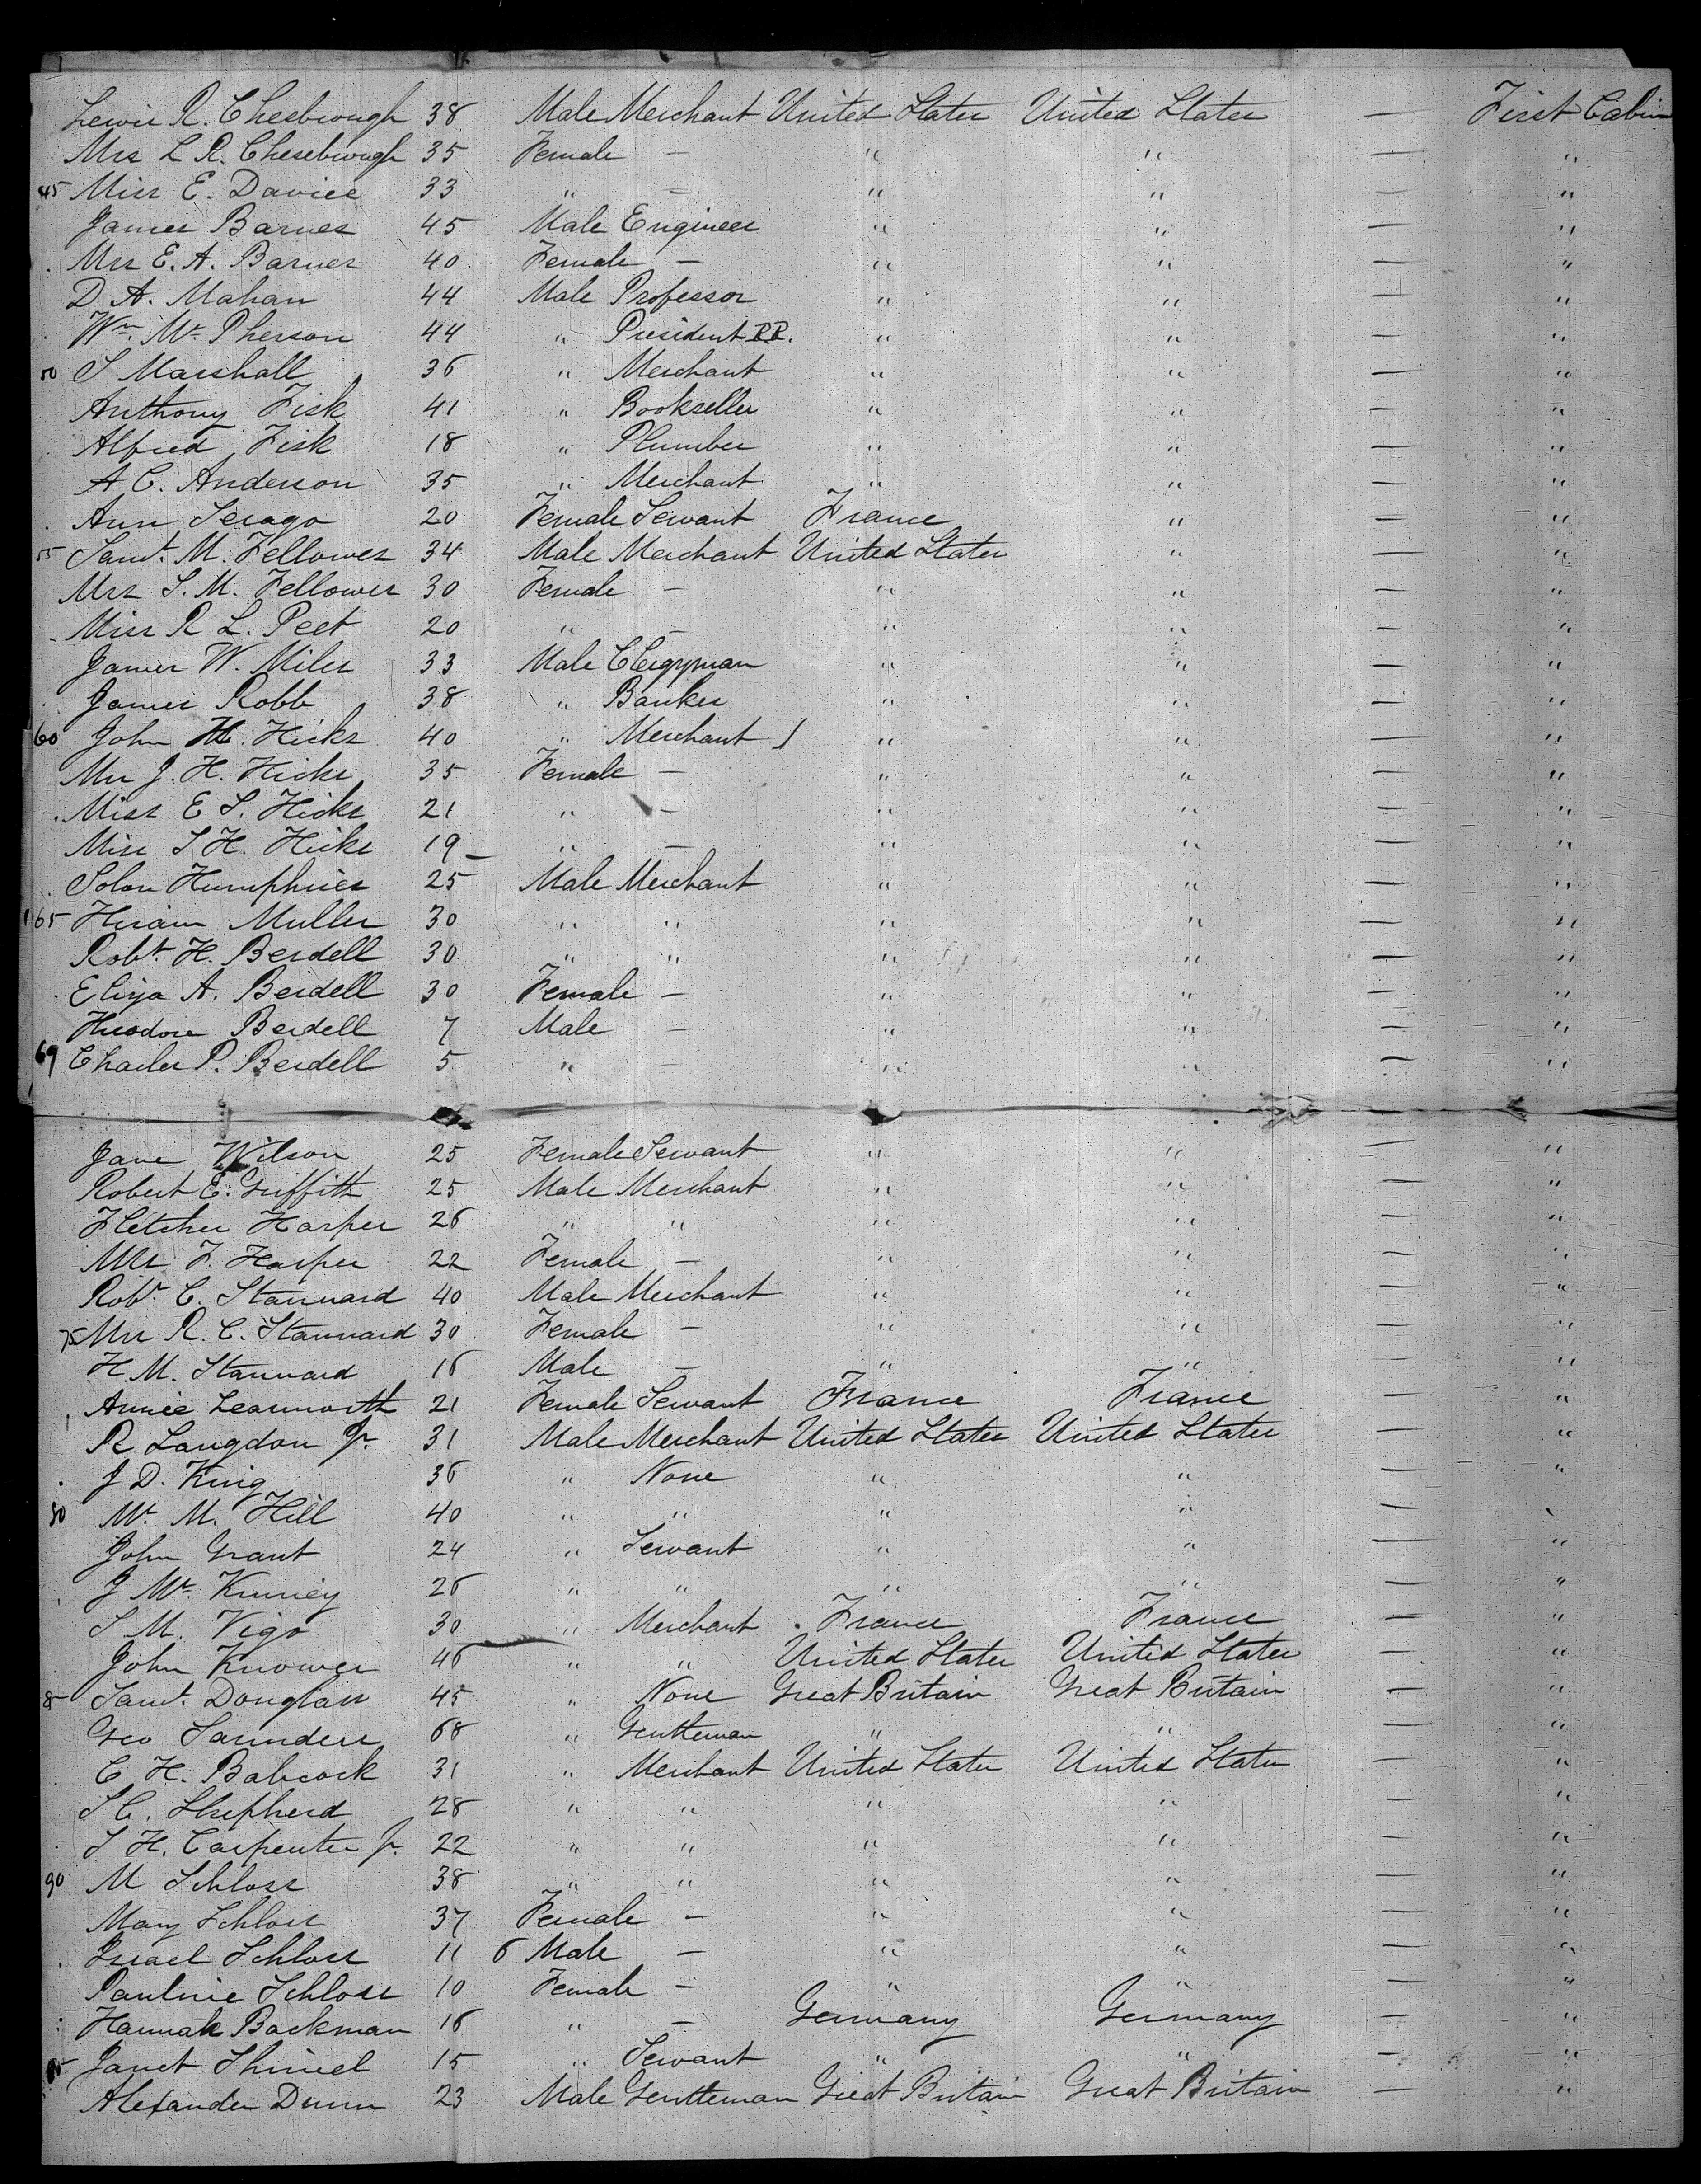 Lewis R. Chesbrough 38 Male Merchant United States United States — First Cabin
Mrs L R. Chesebrough 35 Female — " " — "
45 Miss E. Davies 33 " — " " — "
James Barnes 45 Male Engineer " " — "
Mrs E. A. Barnes 40 Female — " " — "
D. A. Mahan 44 Male Professor " " — "
Wm. Mc Pherson 44 " President RR. " " — "
50 S Marshall 36 " Merchant " " — "
Anthony Fisk 41 " Bookseller " " — "
Alfred Fisk 18 " Plumber " " — "
A C. Anderson 35 " Merchant " " — "
Ann Serago 20 Female Servant France " — "
55 Saml. M. Fellowes 34 Male Merchant United States " — "
Mrs S. M. Fellowes 30 Female — " " — "
Miss R L. Peet 20 " — " " — "
James W. Miles 33 Male Clergyman " " — "
James Robb 38 " Banker " " — "
60 John H. Hicks 40 " Merchant " " — "
Mrs J. H. Hicks 35 Female — " " — "
Miss E S. Hicks 21 " — " " — "
Miss S H. Hicks 19 " — " " — "
Solon Humphries 25 Male Merchant " " — "
65 Hiram Muller 30 " " " " — "
Robt. H. Berdell 30 " " " " — "
Eliza A. Berdell 30 Female — " " — "
Theodore Berdell 7 Male — " " — "
69 Charles P. Berdell 5 " — " " — "
Jane Wilson 25 Female Servant " " — "
Robert E. Griffith 25 Male Merchant " " — "
Fletcher Harper 26 " " " " — "
Mrs F. Harper 22 Female — " " — "
Robt. C. Stannard 40 Male Merchant " " — "
75 Mrs R. C. Stannard 30 Female — " " — "
H. M. Stannard 16 Male — " " — "
Annie Learnorth 21 Female Servant France France — "
R Langdon Jr. 31 Male Merchant United States United States — "
J D. King 36 " None " " — "
80 W. M. Hill 40 " " " " — "
John Grant 24 " Servant " " — "
J Mc Kinney 26 " " " " — "
S M. Vigo 30 " Merchant France France — "
John Knower 46 " " United States United States — "
85 Saml. Douglass 45 " None Great Britain Great Britain — "
Geo Saunders 68 " Gentleman " " — "
C H. Babcock 31 " Merchant United States United States — "
S C. Shepherd 28 " " " " — "
S H. Carpenter Jr. 22 " " " " — "
90 M Schloss 38 " " " " — "
Mary Schloss 37 Female — " " — "
Israel Schloss 11 6 Male — " " — "
Pauline Schloss 10 Female — " " — "
Hannah Backman 16 " — Germany Germany — "
95 Janet Shimel 15 " Servant " " — "
Alexander Dunn 23 Male Gentleman Great Britain Great Britain — "